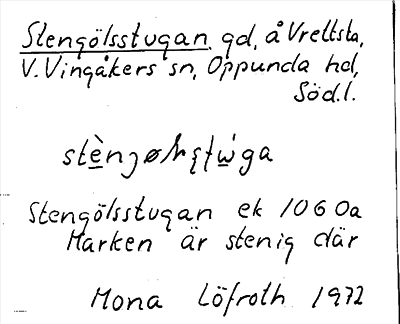 Stengölsstugan, gd, å Vreltsta,
V. Vingåkers sn, Oppunda hd,
Söd.l.
Stengölsstugan ek 1060a
Marken är stenig där
Mona Löfroth 1972